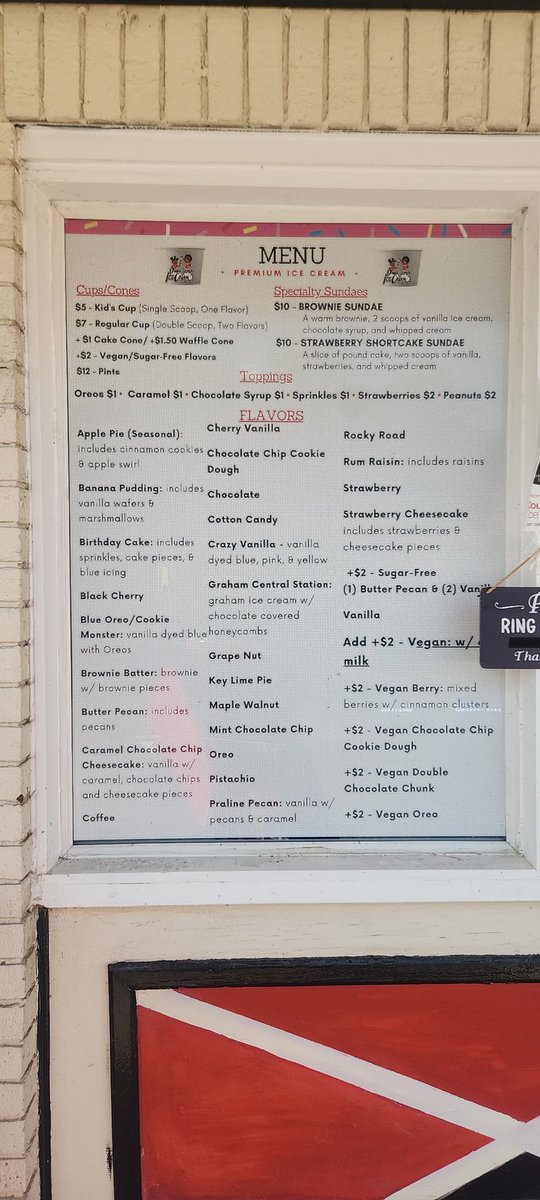 MENU
• PREMIUM ICE CREAM •
Cups/Cones
$5 - Kid's Cup (Single Scoop, One Flavor)
$7 - Regular Cup (Double Scoop, Two Flavors)
+ $1 Cake Cone/ +$1.50 Waffle Cone
+$2 - Vegan/Sugar-Free Flavors
$12 - Pints
Specialty Sundaes
$10 - BROWNIE SUNDAE
A warm brownie, 2 scoops of vanilla ice cream,
chocolate syrup, and whipped cream
$10 - STRAWBERRY SHORTCAKE SUNDAE
A slice of pound cake, two scoops of vanilla,
strawberries, and whipped cream
Toppings
Oreos $1 • Caramel $1 • Chocolate Syrup $1 • Sprinkles $1 • Strawberries $2 • Peanuts $2
FLAVORS
Apple Pie (Seasonal):
includes cinnamon cookies
& apple swirl
Banana Pudding: includes
vanilla wafers &
marshmallows
Birthday Cake: includes
sprinkles, cake pieces, &
blue icing
Black Cherry
Blue Oreo/Cookie
Monster: vanilla dyed blue
with Oreos
Brownie Batter: brownie
w/ brownie pieces
Butter Pecan: includes
pecans
Caramel Chocolate Chip
Cheesecake: vanilla w/
caramel, chocolate chips
and cheesecake pieces
Coffee
Cherry Vanilla
Chocolate Chip Cookie
Dough
Chocolate
Cotton Candy
Crazy Vanilla - vanilla
dyed blue, pink, & yellow
Graham Central Station:
graham ice cream w/
chocolate covered
honeycombs
Grape Nut
Key Lime Pie
Maple Walnut
Mint Chocolate Chip
Oreo
Pistachio
Praline Pecan: vanilla w/
pecans & caramel
Rocky Road
Rum Raisin: includes raisins
Strawberry
Strawberry Cheesecake
includes strawberries &
cheesecake pieces
+$2 - Sugar-Free
(1) Butter Pecan & (2) Vanill
Vanilla
Add +$2 - Vegan: w/
milk
+$2 - Vegan Berry: mixed
berries w/ cinnamon clusters
+$2 - Vegan Chocolate Chip
Cookie Dough
+$2 - Vegan Double
Chocolate Chunk
+$2 - Vegan Oreo
RING
Tha